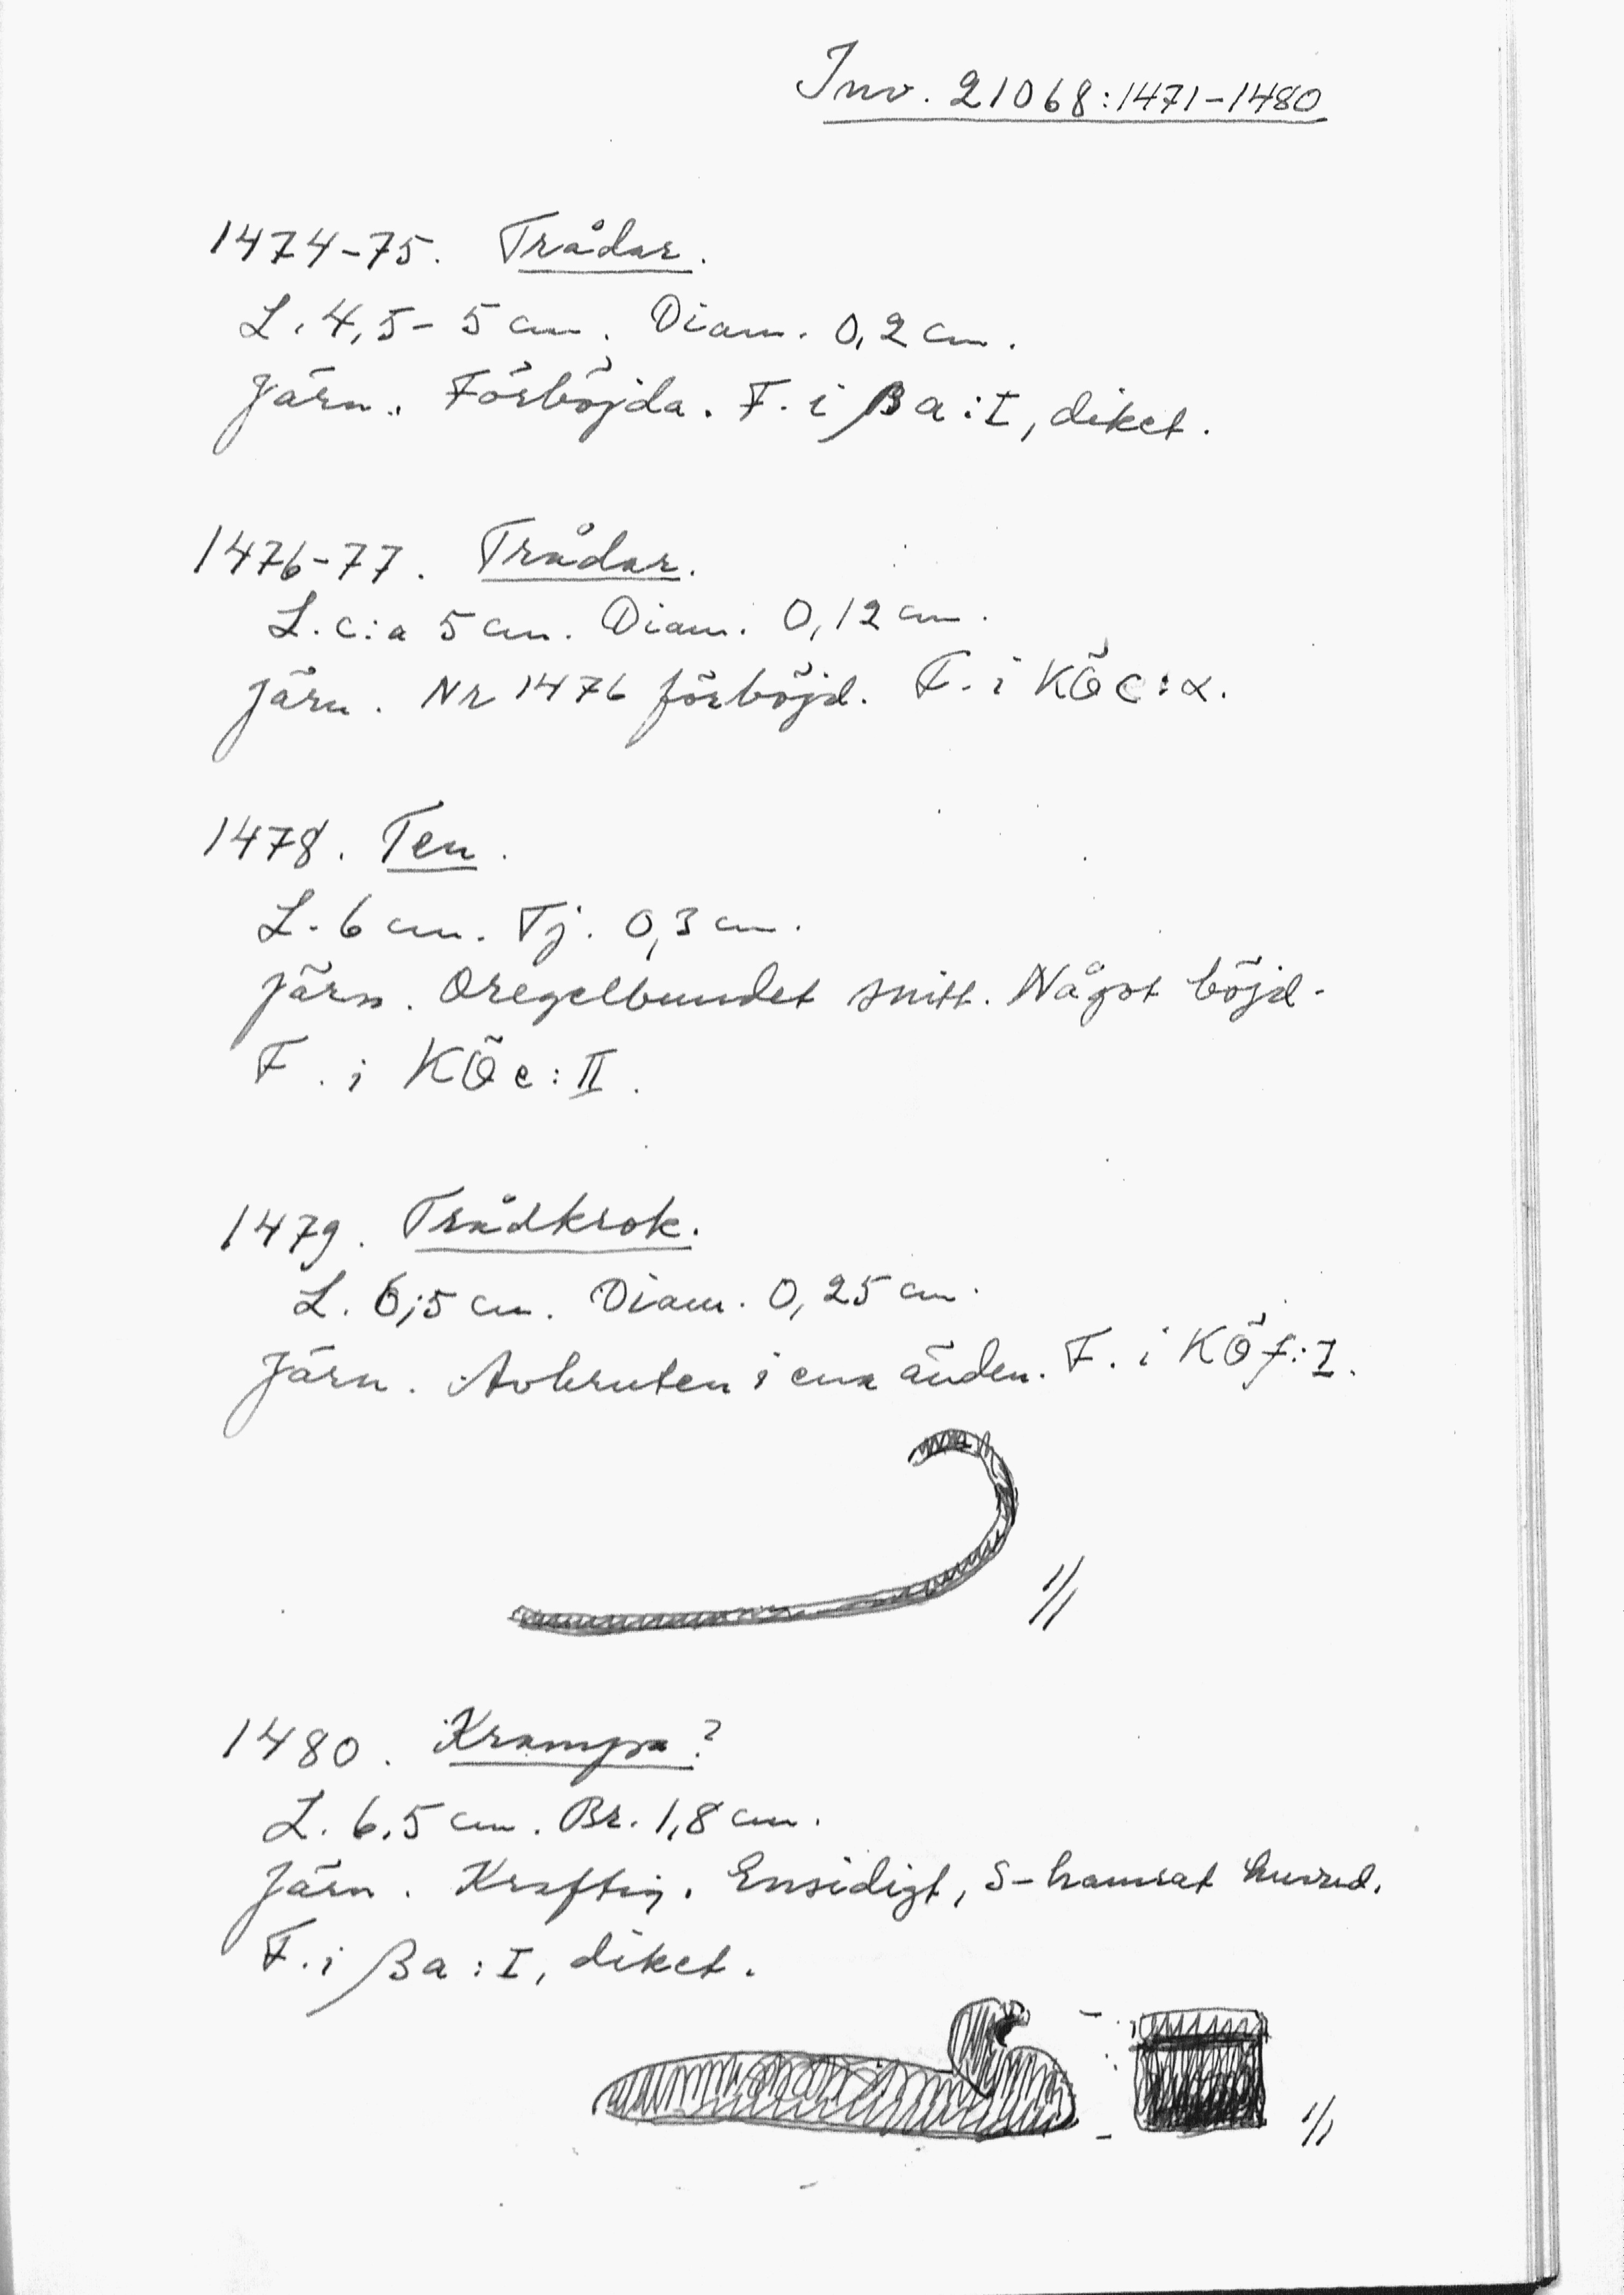 Inv. 21068:1471-1480
1474-75. Trådar.
L. 4,5- 5 cm. Diam. 0,2 cm.
Järn. Förböjda. F. i βa:I, diket.
1476-77. Trådar.
L. c:a 5 cm. Diam. 0,12 cm.
Järn. Nr 1476 förböjd. F. i KÖc:α.
1478. Ten.
L. 6 cm. Tj. 0,3 cm.
Järn. Oregelbundet snitt. Något böjd.
F. i KÖc:II.
1479. Trådkrok.
L. 6,5 cm. Diam. 0,25 cm.
Järn. Avbruten i ena änden. F. i KÖf:I.
1/1
1480. Krampa?
L. 6,5 cm. Br. 1,8 cm.
Järn. Kraftig. Ensidigt, S-hamrat huvud.
F. i βa:I, diket.
1/1